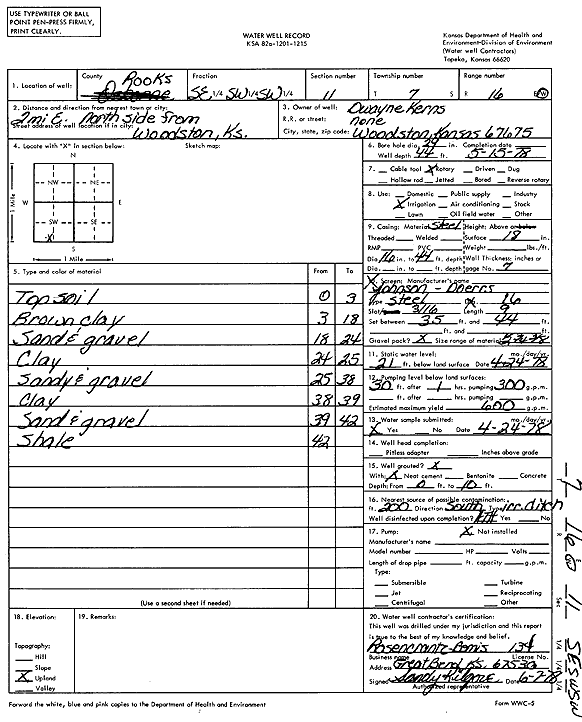 USE TYPEWRITER OR BALL
POINT PEN-PRESS FIRMLY,
PRINT CLEARLY.
WATER WELL RECORD
KSA 82a-1201-1215
Kansas Department of Health and
Environment-Division of Environment
(Water well Contractors)
Topeka, Kansas 66620
1. Location of well: County Rooks Fraction SE 1/4 SW 1/4 SW 1/4 Section number 11 Township number T 7 S Range number R 16 E/W
2. Distance and direction from nearest town or city: 2 mi E. North side from
Street address of well location if in city: Woodston, Ks.
3. Owner of well: Dwayne Kerns
R.R. or street: none
City, state, zip code: Woodston, Kansas 67675
4. Locate with "X" in section below: Sketch map:
N
NW NE
W E
SW SE
X
S
1 Mile
1 Mile
6. Bore hole dia. 29 in. Completion date
Well depth 44 ft. 5-15-78
7. Cable tool X Rotary Driven Dug
Hollow rod Jetted Bored Reverse rotary
8. Use: Domestic Public supply Industry
X Irrigation Air conditioning Stock
Lawn Oil field water Other
9. Casing: Material Steel Height: Above or below
Threaded Welded Surface 18 in.
RMP PVC Weight lbs./ft.
Dia. 16 in. to 44 ft. depth Wall Thickness: inches or
Dia. in. to ft. depth gage No. 7
5. Type and color of material From To
Top soil 0 3
Brown clay 3 18
Sand & gravel 18 24
Clay 24 25
Sandy & gravel 25 38
Clay 38 39
Sand & gravel 39 42
Shale 42
(Use a second sheet if needed)
10. Screen: Manufacturer's name
Johnson -
Type Steel Dia. 16
Slot 3/16 Length 9
Set between 35 ft. and 44 ft.
ft. and ft.
Gravel pack? X Size range of material
11. Static water level: mo./day/yr.
21 ft. below land surface Date 4-24-78
12. Pumping level below land surfaces:
30 ft. after 1 hrs. pumping 300 g.p.m.
ft. after hrs. pumping g.p.m.
Estimated maximum yield 600 g.p.m.
13. Water sample submitted: mo./day/yr.
X Yes No Date 4-24-78
14. Well head completion:
Pitless adapter Inches above grade
15. Well grouted? X
With: X Neat cement Bentonite Concrete
Depth: From 0 ft. to 10 ft.
16. Nearest source of possible contamination:
ft. 200 Direction South Type irr. ditch
Well disinfected upon completion? HTH Yes No
17. Pump: X Not installed
Manufacturer's name
Model number HP Volts
Length of drop pipe ft. capacity g.p.m.
Type:
Submersible Turbine
Jet Reciprocating
Centrifugal Other
18. Elevation:
Topography:
Hill
Slope
X Upland
Valley
19. Remarks:
20. Water well contractor's certification:
This well was drilled under my jurisdiction and this report
is true to the best of my knowledge and belief.
Rosencrantz-Bemis 134
Business name License No.
Address Great Bend, KS. 67530
Signed Sandy Kilgore Date 6-7-78
Authorized representative
Forward the white, blue and pink copies to the Department of Health and Environment Form WWC-5
7 16 W 11 SESWSW
Sec 1/4 1/4 1/4